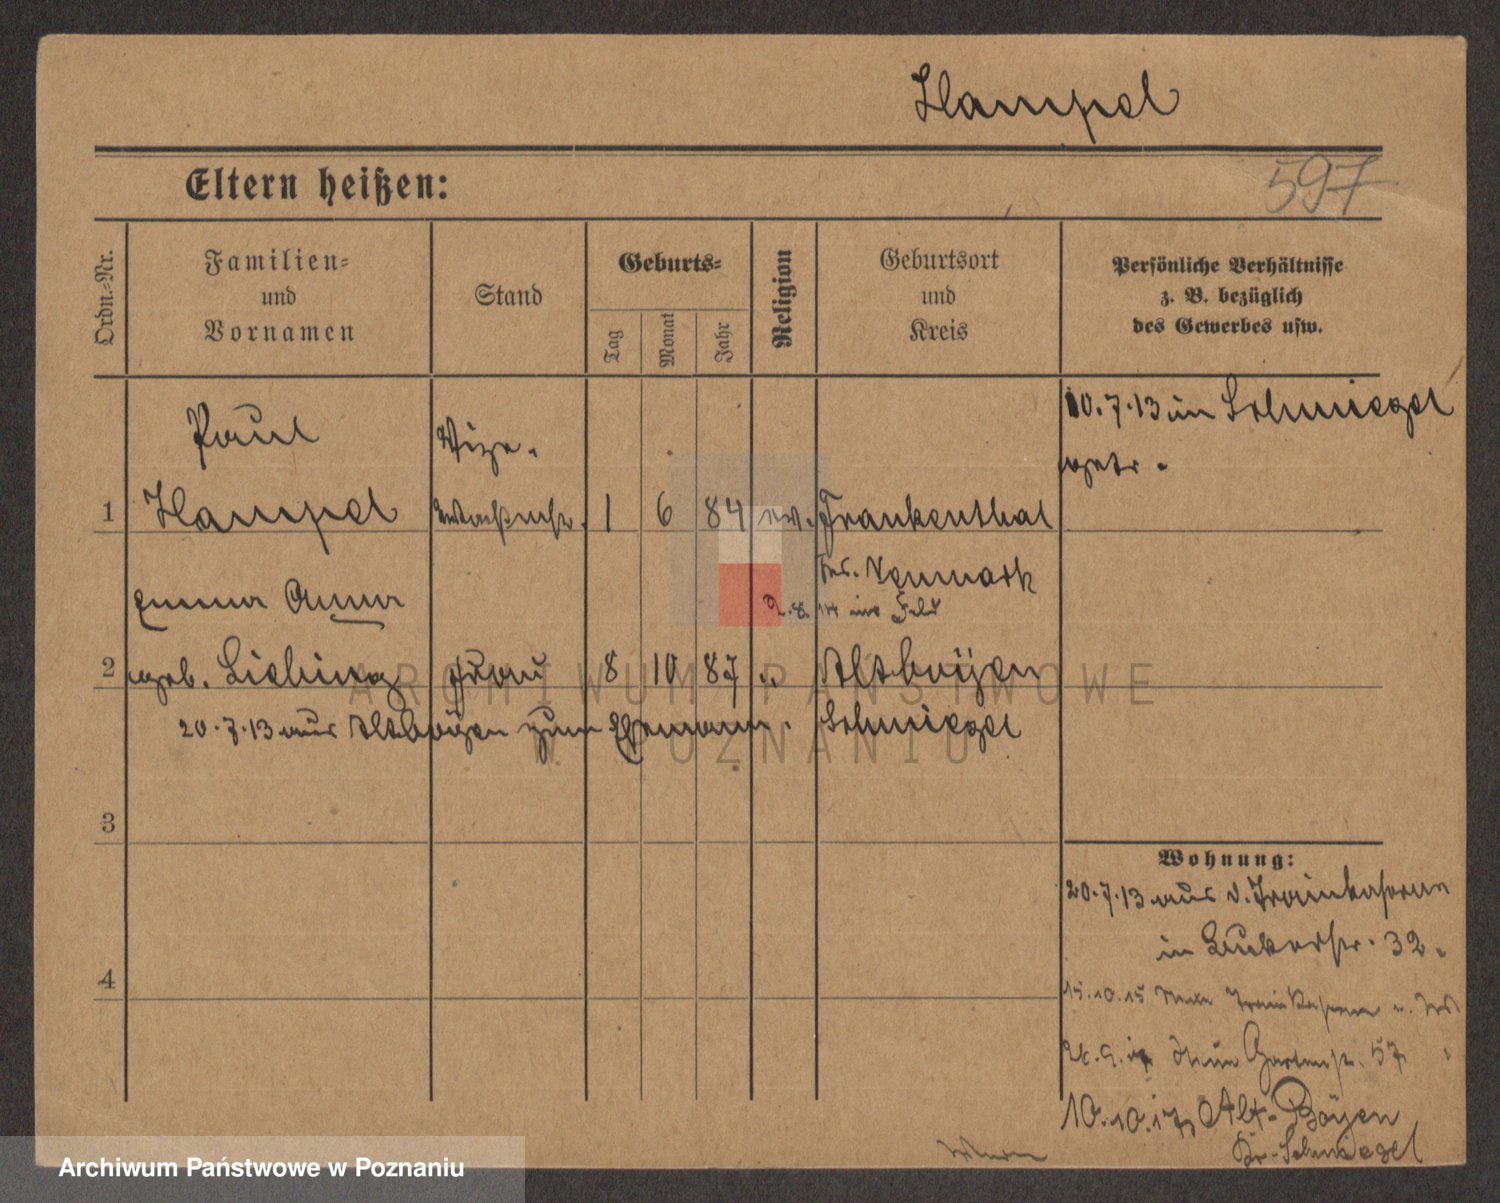 Hampel
597
Eltern heißen:
Ordn.-Nr.
Familien-
und
Vornamen
Stand
Geburts-
Tag
Monat
Jahr
Religion
Geburtsort
und
Kreis
Persönliche Verhältnisse
z. B. bezüglich
des Gewerbes usw.
1
Paul
Hampel
Vize-
wachtmstr.
1 6 84 ev.
Frankenthal
Krs. Neumark
2.8.14 ins Feld
10.7.13 in Schmiegel
getr.
2
Emma Anna
geb. Liebing
Frau
8 10 87 "
Altboyen
Schmiegel
20.7.13 aus Altboyen zum Ehemann.
3
4
Wohnung:
20.7.13 aus d. Trainkaserne
in 32.
15.10.15 Trainkaserne
Gartenstr. 57
10.10.17 Alt-Boyen
Kr. Schmiegel
ARCHIWUM PAŃSTWOWE
W POZNANIU
Archiwum Państwowe w Poznaniu